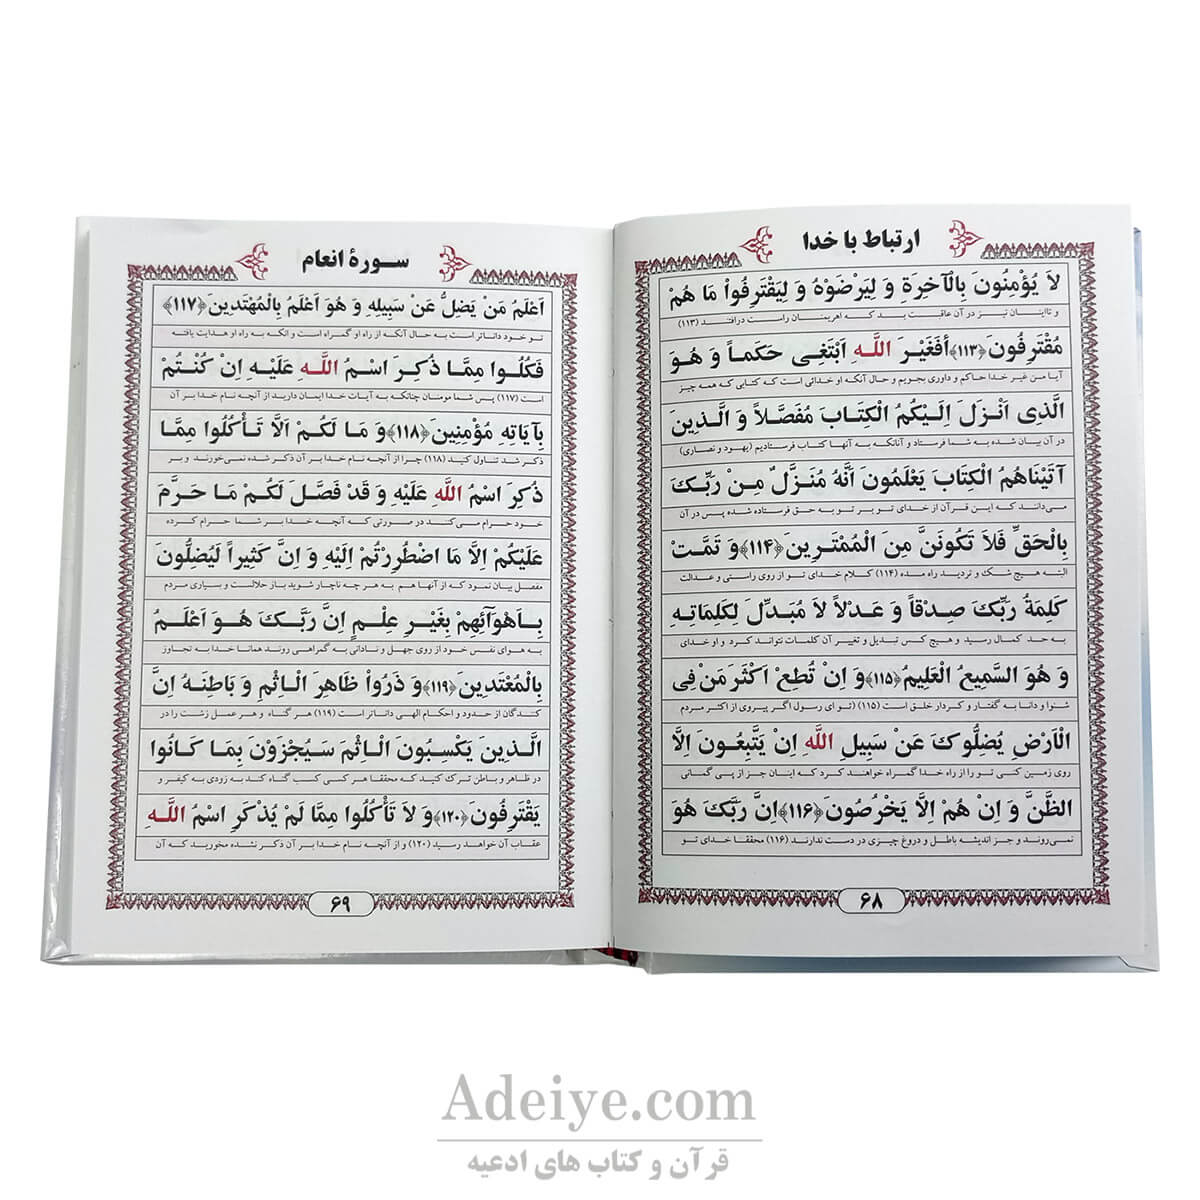 ارتباط با خدا
لاَ يُؤْمِنُونَ بِالْآخِرَةِ وَ لِيَرْضَوْهُ وَ لِيَقْتَرِفُواْ مَا هُمْ
و تااینان نیز در آن عاقبت بد که اهریمنان راست درافتند (۱۱۳)
مُقْتَرِفُونَ﴿۱۱۳﴾أَفَغَيْرَ اللَّهِ ابْتَغِى حَكَماً وَ هُوَ
آیا من غیر خدا حاکم و داوری بجویم و حال آنکه او خدائی است که کتابی که همه چیز
الَّذِى انْزَلَ اِلَيْكُمُ الْكِتَابَ مُفَصَّلاً وَ الَّذِينَ
در آن بیان شده به شما فرستاد و آنانکه به آنها کتاب فرستادیم (یهود و نصاری)
آتَيْنَاهُمُ الْكِتَابَ يَعْلَمُونَ اَنَّهُ مُنَزَّلٌ مِنْ رَبِّكَ
می‌دانند که این قرآن از خدای تو بر تو به حق فرستاده شده پس در آن
بِالْحَقِّ فَلاَ تَكُونَنَّ مِنَ الْمُمْتَرِينَ﴿۱۱۴﴾وَ تَمَّتْ
البته هیچ شک و تردید راه مده (۱۱۴) کلام خدای تو از روی راستی و عدالت
كَلِمَةُ رَبِّكَ صِدْقاً وَ عَدْلاً لاَ مُبَدِّلَ لِكَلِمَاتِهِ
به حد کمال رسید و هیچ کس تبدیل و تغییر آن کلمات نتواند کرد و او خدای
وَ هُوَ السَّمِيعُ الْعَلِيمُ﴿۱۱۵﴾وَ اِنْ تُطِعْ اَكْثَرَ مَنْ فِى
شنوا و دانا به گفتار و کردار خلق است (۱۱۵) (تو ای رسول اگر پیروی از اکثر مردم
الْاَرْضِ يُضِلُّوكَ عَنْ سَبِيلِ اللَّهِ اِنْ يَتَّبِعُونَ اِلَّا
روی زمین کنی تو را از راه خدا گمراه خواهند کرد که اینان جز از پی گمانی
الظَّنَّ وَ اِنْ هُمْ اِلَّا يَخْرُصُونَ﴿۱۱۶﴾اِنَّ رَبَّكَ هُوَ
نمی‌روند و جز اندیشه باطل و دروغ چیزی در دست ندارند (۱۱۶) محققا خدای تو
۶۸
سورهٔ انعام
اَعْلَمُ مَنْ يَضِلُّ عَنْ سَبِيلِهِ وَ هُوَ اَعْلَمُ بِالْمُهْتَدِينَ﴿۱۱۷﴾
تو خود داناتر است به حال آنکه از راه او گمراه است و آنکه به راه او هدایت یافته
فَكُلُوا مِمَّا ذُكِرَ اسْمُ اللَّهِ عَلَيْهِ اِنْ كُنْتُمْ
است (۱۱۷) پس شما مومنان چنانکه به آیات خدا ایمان دارید از آنچه نام خدا بر آن
بِآيَاتِهِ مُؤْمِنِينَ﴿۱۱۸﴾وَ مَا لَكُمْ اَلاَّ تَأْكُلُوا مِمَّا
ذکر شد تناول کنید (۱۱۸) چرا از آنچه نام خدا بر آن ذکر شده نمی‌خورند و بر
ذُكِرَ اسْمُ اللَّهِ عَلَيْهِ وَ قَدْ فَصَّلَ لَكُمْ مَا حَرَّمَ
خود حرام می‌کنند در صورتی که آنچه خدا بر شما حرام کرده
عَلَيْكُمْ اِلَّا مَا اضْطُرِرْتُمْ اِلَيْهِ وَ اِنَّ كَثِيراً لَيُضِلُّونَ
مفصل بیان نمود که از آنها هم به هر چه ناچار شوید باز حلالست و بسیاری مردم
بِاَهْوَآئِهِمْ بِغَيْرِ عِلْمٍ اِنَّ رَبَّكَ هُوَ اَعْلَمُ
به هوای نفس خود از روی جهل و نادانی به گمراهی روند همانا خدا به تجاوز
بِالْمُعْتَدِينَ﴿۱۱۹﴾وَ ذَرُواْ ظَاهِرَ الْاِثْمِ وَ بَاطِنَهُ اِنَّ
کنندگان از حدود و احکام الهی داناتر است (۱۱۹) هر گناه و هر عمل زشت را در
الَّذِينَ يَكْسِبُونَ الْاِثْمَ سَيُجْزَوْنَ بِمَا كَانُوا
در ظاهر و باطن ترک کنید که محققا هر کسی کسب گناه کند به زودی به کیفر و
يَقْتَرِفُونَ﴿۱۲۰﴾وَ لاَ تَأْكُلُوا مِمَّا لَمْ يُذْكَرِ اسْمُ اللَّهِ
عقاب آن خواهد رسید (۱۲۰) و از آنچه نام خدا بر آن ذکر نشده مخورید که آن
۶۹
Adeiye.com
قرآن و کتاب های ادعیه